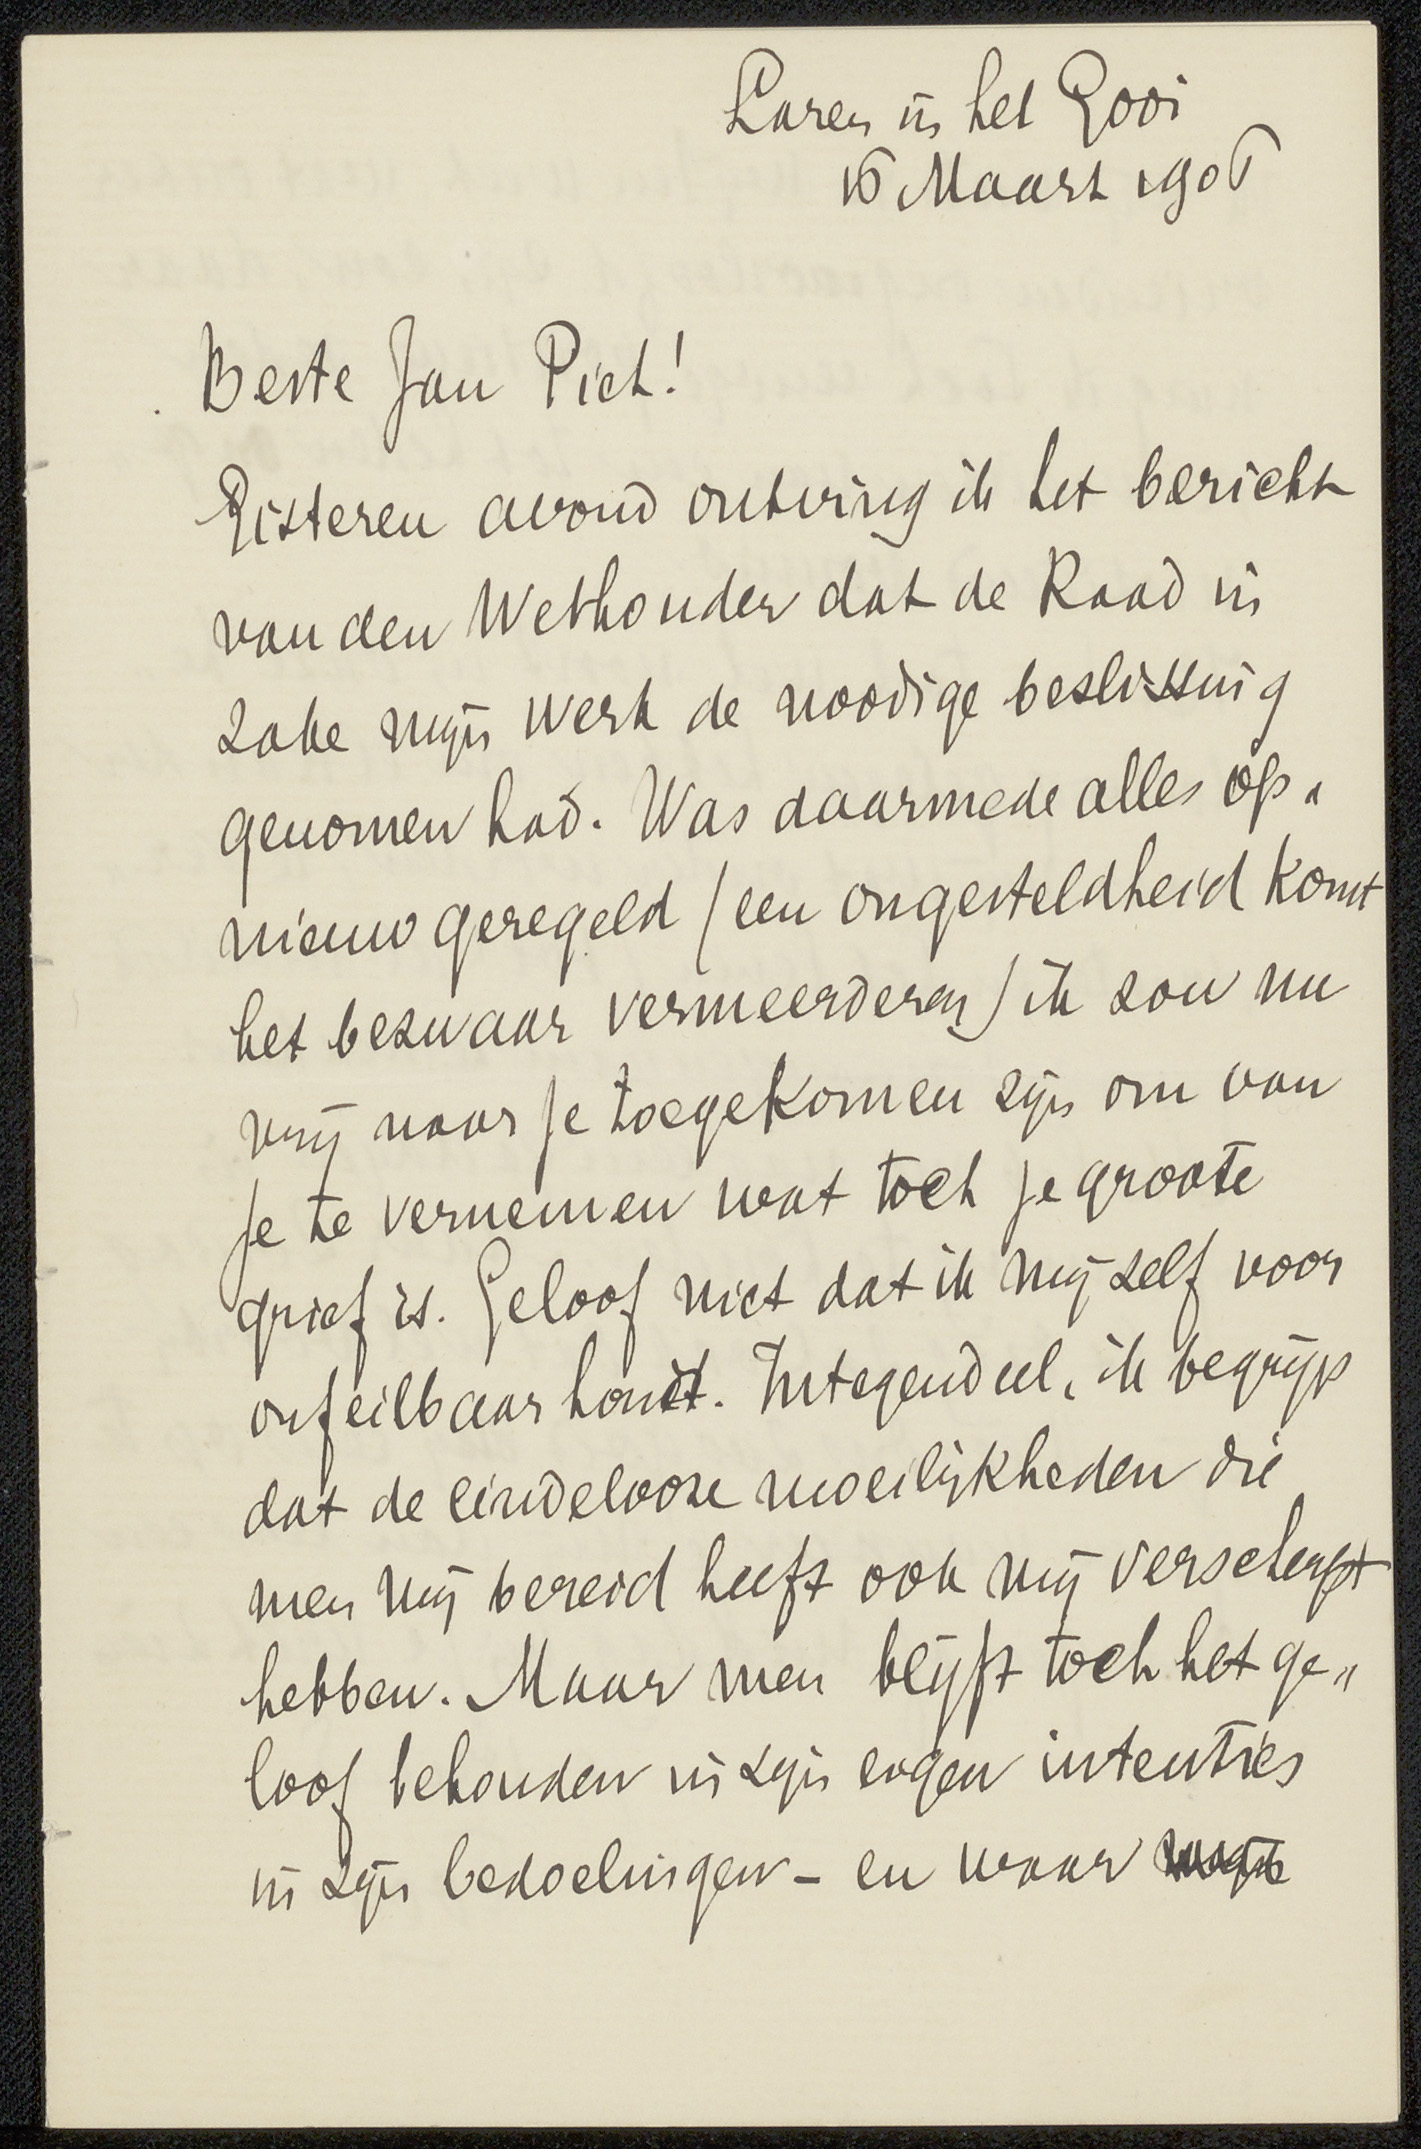 Laren in het Gooi
16 Maart 1906
Beste Jan Piet!
Gisteren avond ontving ik het bericht
van den Wethouder dat de Raad in
zake mijn werk de noodige beslissing
genomen had. Was daarmede alles op„
nieuw geregeld (een ongesteldheid komt
het bezwaar vermeerderen) ik zou nu
vrij naar je toegekomen zijn om van
je te vernemen wat toch je groote
grief is. Geloof niet dat ik mijzelf voor
onfeilbaar houdt. Integendeel, ik begrijp
dat de eindelooze moeilijkheden die
men mij bereid heeft ook mij verscherpt
hebben. Maar men blijft toch het ge„
loof behouden in zijn eigen intenties
in zijn bedoelingen - en waar